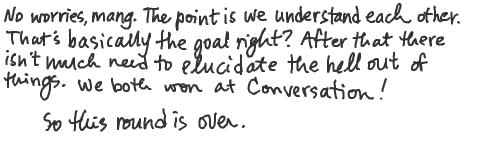 No worries, mang. The point is we understand each other.
That's basically the goal right? After that there
isn't much need to elucidate the hell out of
things. We both won at Conversation!
So this round is over.